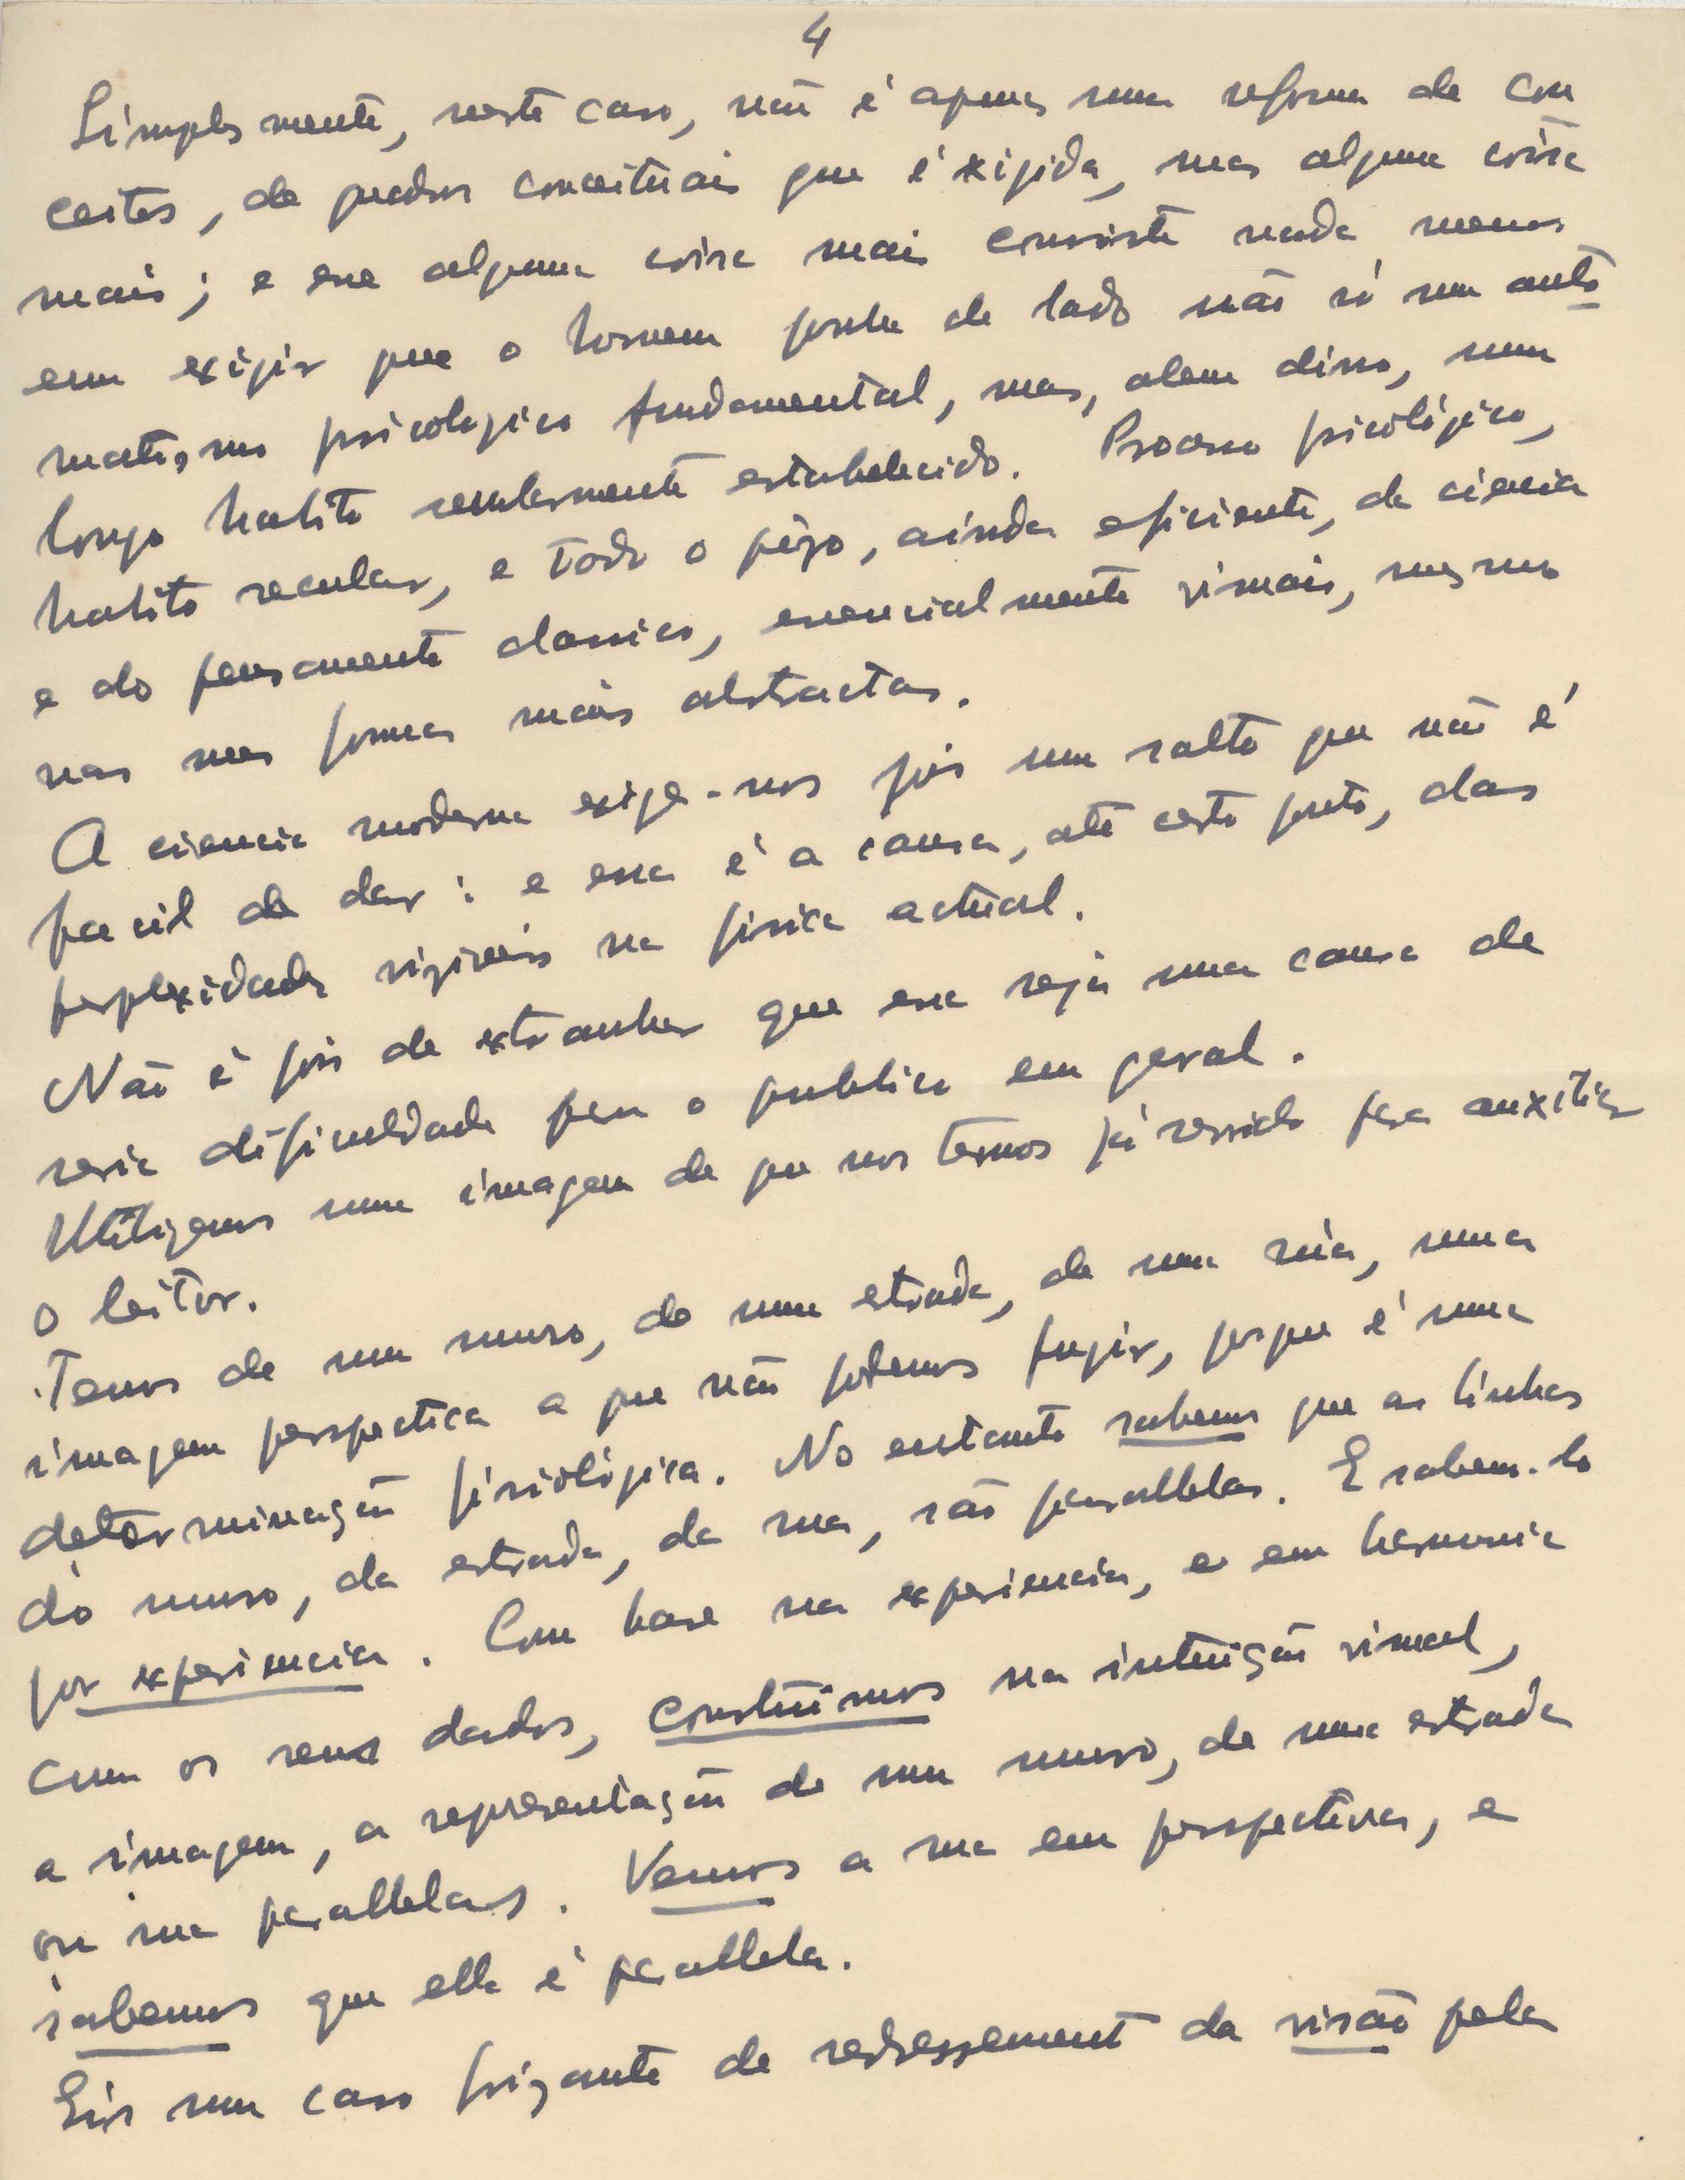 4
Simplesmente, neste caso, não é apenas uma reforma de con
ceitos, de quadros conceituais que é exigida, mas alguma coisa
mais; e essa alguma coisa mais consiste nada menos
em exigir que o homem ponha de lado não só um auto
matismo psicologico fundamental, mas, alem disso, um
longo habito secularmente estabelecido. Processo psicológico,
habito secular, e todo o pêzo, ainda eficiente, da ciencia
e do pensamento classico, essencialmente visuais, mesmo
nas suas formas mais abstractas.
A ciencia moderna exige-nos pois um salto que não é
facil de dar: e essa é a causa, até certo ponto, das
perplexidades visiveis na fisica actual.
Não é pois de extranhar que essa seja uma causa de
seria dificuldade para o publico em geral.
Utilizemos uma imagem de que nos temos já servido para auxiliar
o leitor.
Temos de um muro, de uma estrada, de uma rúa, uma
imagem perspectica a que não podemos fugir, porque é uma
determinação fisiológica. No entanto sabemos que as linhas
do muro, da estrada, da rua, são parallelas. E sabemo-lo
por experiencia. Com base na experiencia, e em harmonia
com os seus dados, construimos na intuição visual,
a imagem, a representação de um muro, de uma estrada
ou rua parallelas. Vemos a rua em perspectiva, e
sabemos que ella é parallela.
Eis um caso frizante de redressement da visão pela